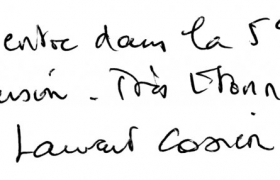 entre dans la 5e
Très étonn
Laurent Cossin